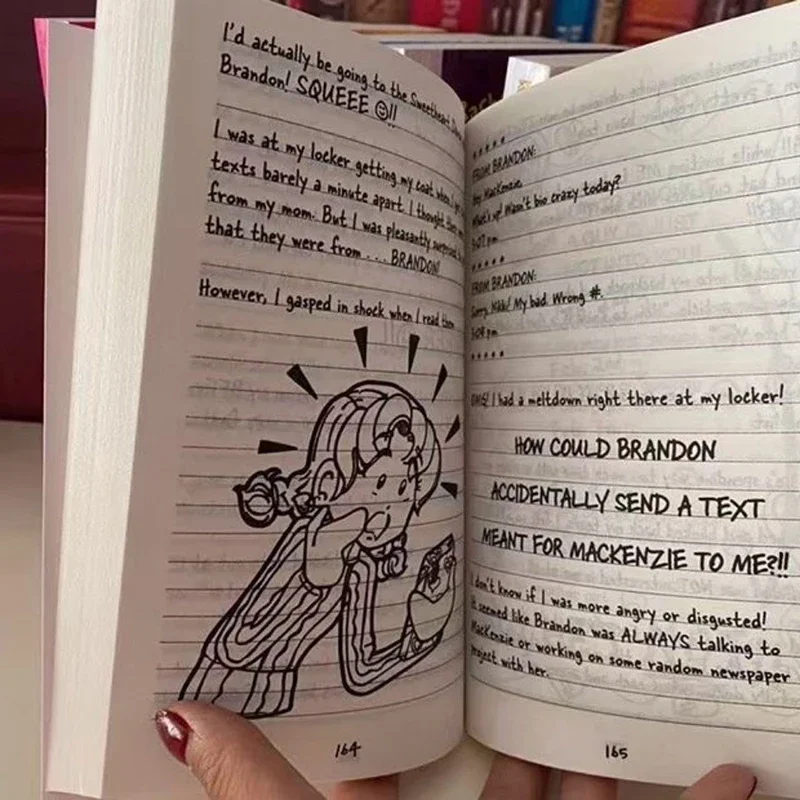 I'd actually be going to the Sweetheart
Brandon! SQUEEE ☺!!
I was at my locker getting my coat when I
texts barely a minute apart. I thought
from my mom. But I was pleasantly surprised
that they were from . . . BRANDON!
However, I gasped in shock when I read them
164
*****
FROM BRANDON:
Hey MacKenzie,
What's up! Wasn't bio crazy today?
3:07 pm
*****
FROM BRANDON:
Sorry, Nikki! My bad. Wrong #.
3:09 pm
*****
OMG! I had a meltdown right there at my locker!
HOW COULD BRANDON
ACCIDENTALLY SEND A TEXT
MEANT FOR MACKENZIE TO ME?!!
I don't know if I was more angry or disgusted!
It seemed like Brandon was ALWAYS talking to
MacKenzie or working on some random newspaper
project with her.
165